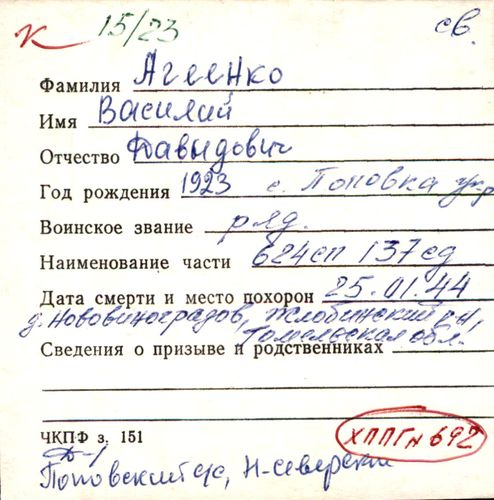 К 15/23 св.
Фамилия Агеенко
Имя Василий
Отчество Давыдович
Год рождения 1923 с. Поповка укр
Воинское звание ряд.
Наименование части 624сп 137сд
Дата смерти и место похорон 25.01.44
д. Нововиноградов, Жлобинский р-н,
Гомельская обл.
Сведения о призыве и родственниках
ЧКПФ з. 151
ХППГ № 692
Д-1
Поповский с/с, Н-Северский